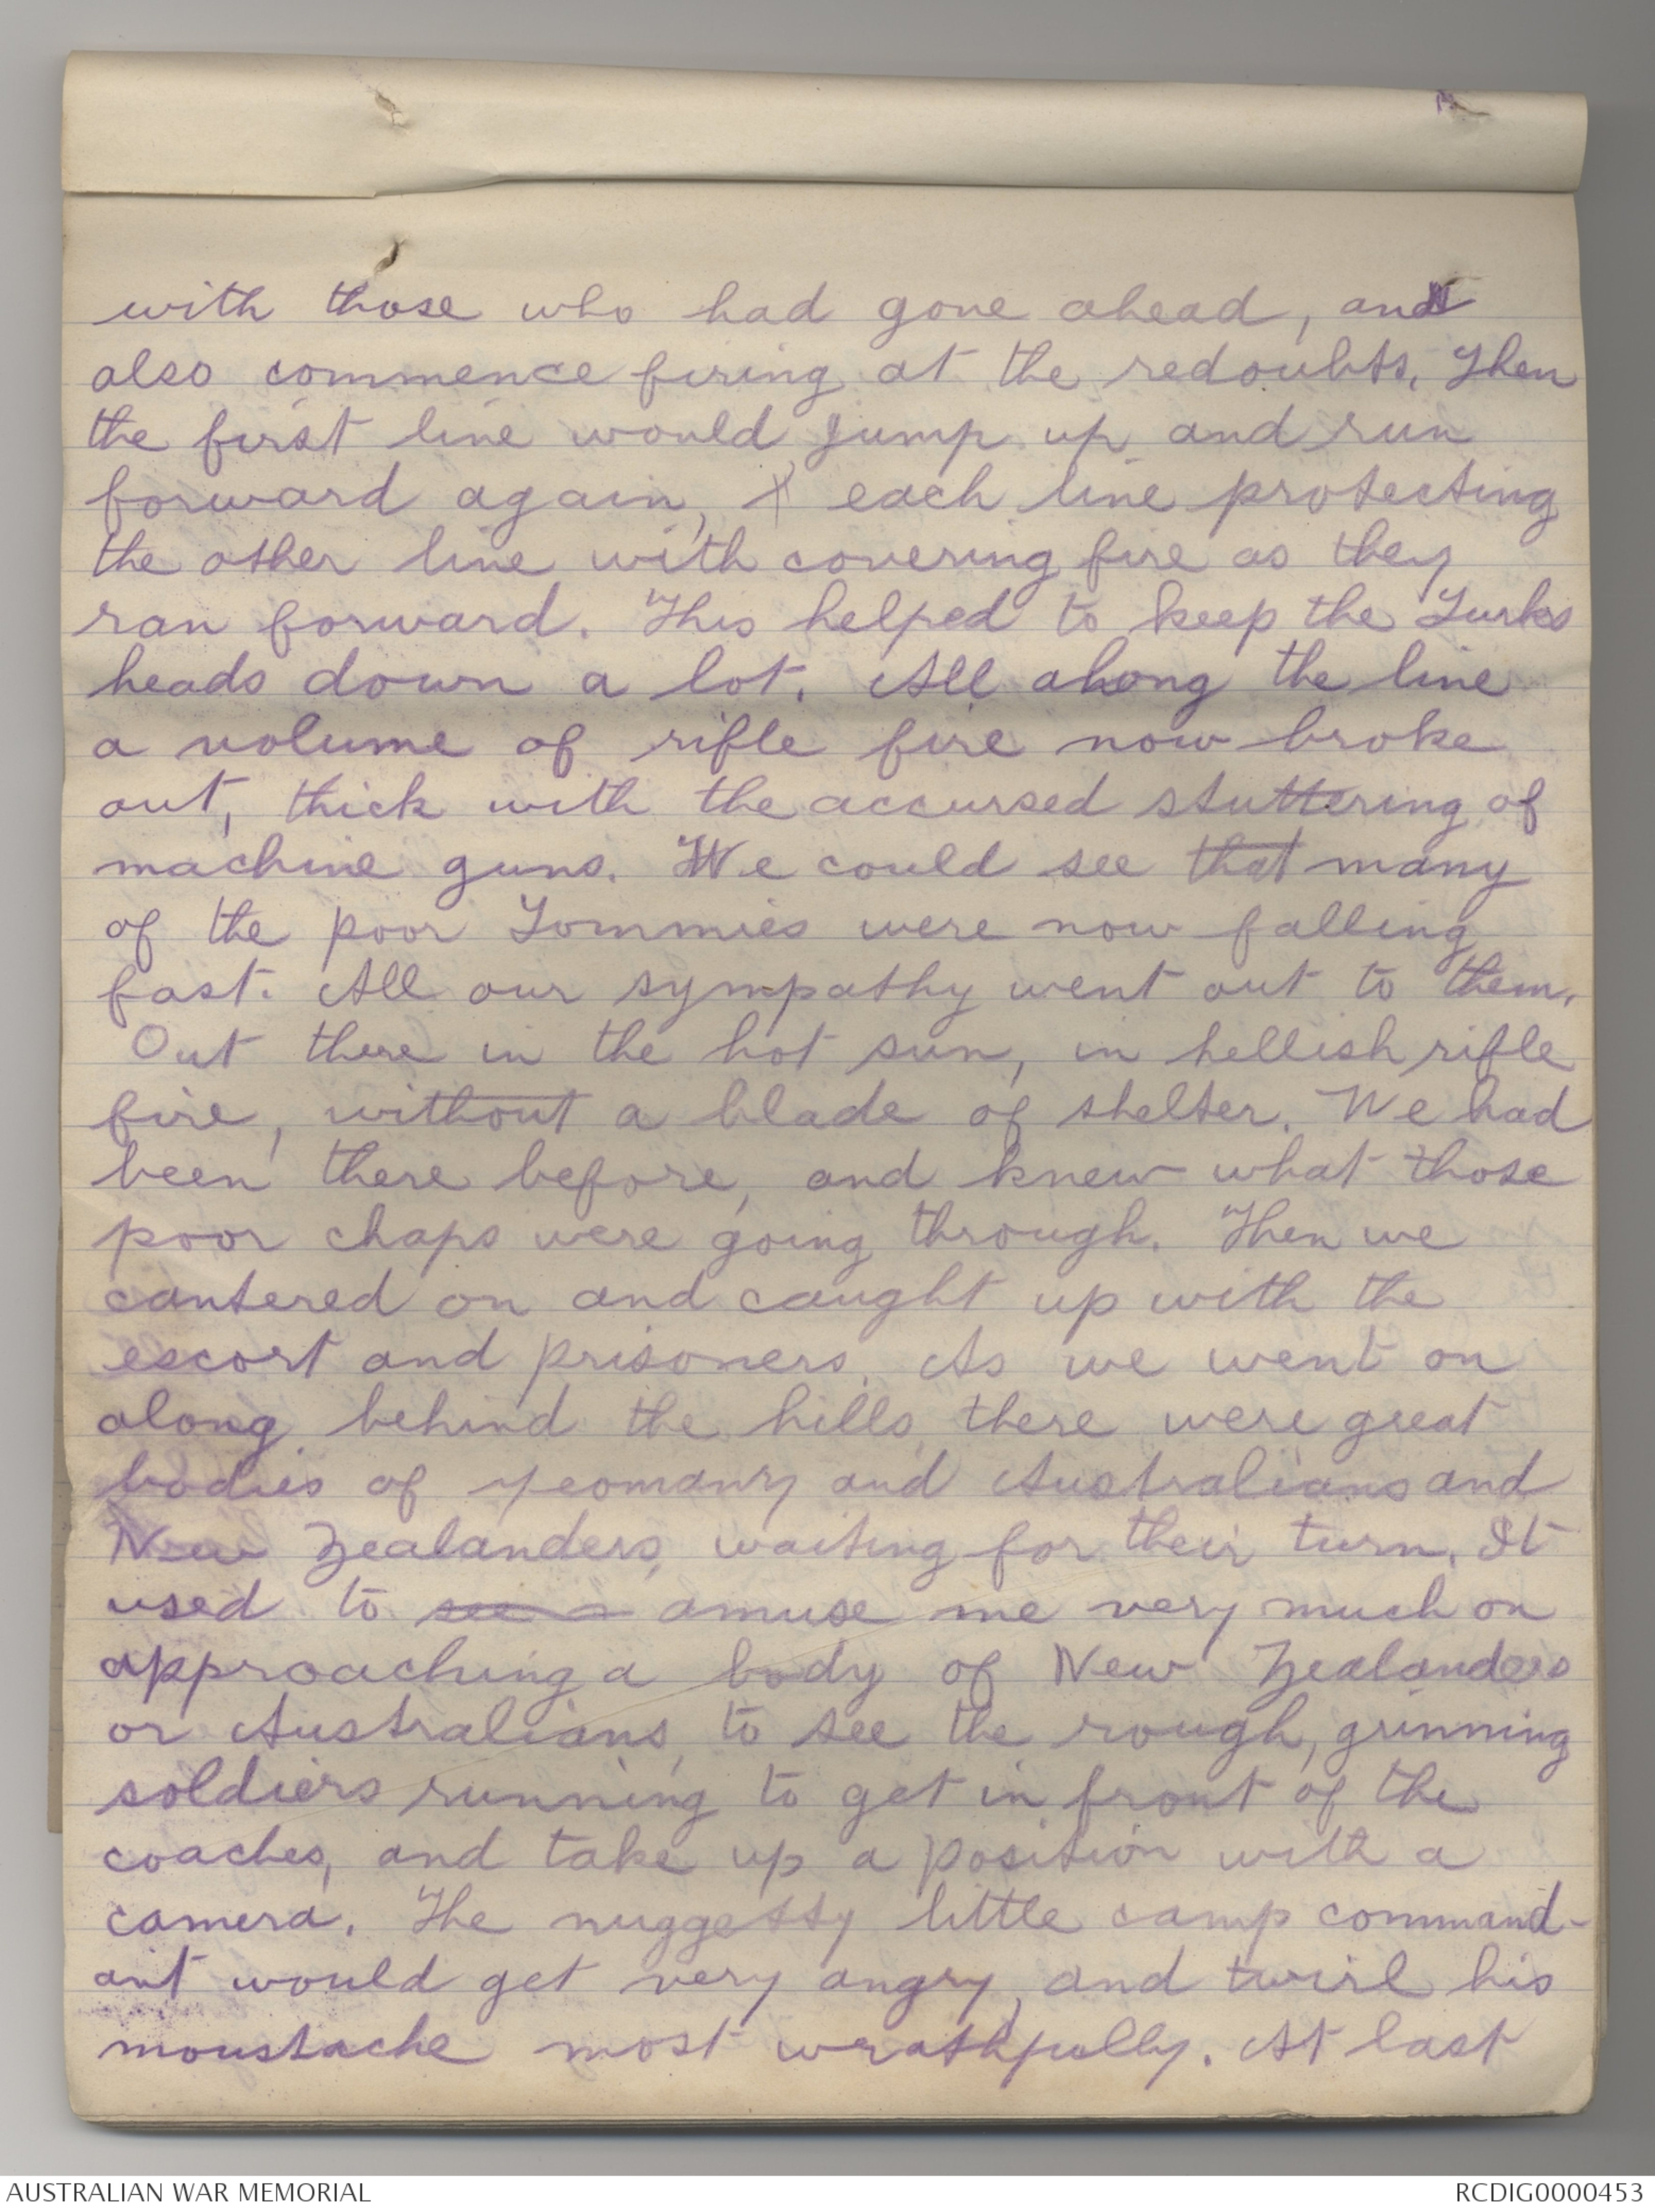 with those who had gone ahead, and
also commence firing at the redoubts. Then
the first line would jump up and run
forward again, X each line protecting
the other line with covering fire as they
ran forward. This helped to keep the Turks
heads down a lot. All along the line
a volume of rifle fire now broke
out, thick with the accursed stuttering of
machine guns. We could see that many
of the poor Tommies were now falling
fast. All our sympathy went out to them.
Out there in the hot sun, in hellish rifle
fire, without a blade of shelter. We had
been there before, and knew what those
poor chaps were going through. Then we
cantered on and caught up with the
escort and prisoners. As we went on
along behind the hills, there were great
bodies of yeomanry and Australians and
New Zealanders, waiting for their turn. It
used to see a amuse me very much on
approaching a body of New Zealanders
or Australians, to see the rough, grinning
soldiers running to get in front of the
coaches, and take up a position with a
camera. The nuggetty little camp command-
ant would get very angry, and twirl his
moustache most wrathfully. At last
AUSTRALIAN WAR MEMORIAL
RCDIG0000453